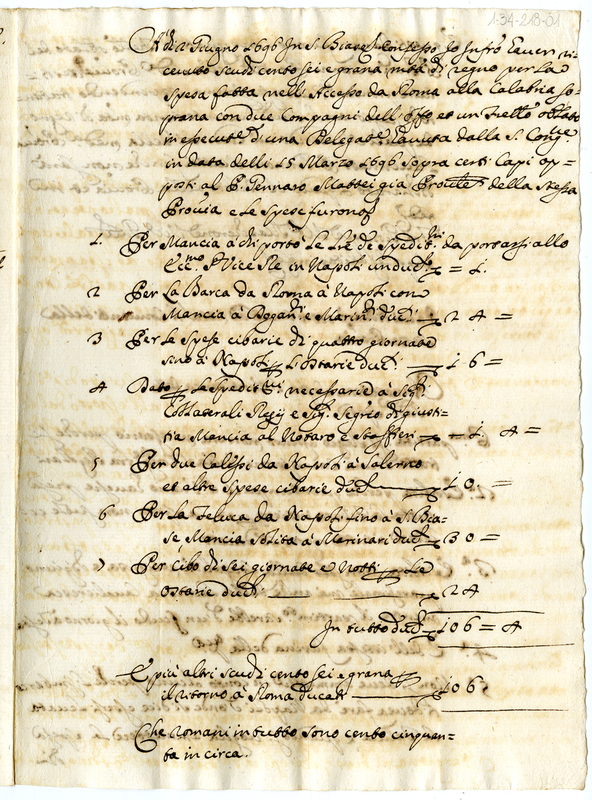 1-34-218-01
A di 2 Giugno 1696 In S. Biase Confesso Io infrõ haver ri=
cevuto scudi cento sei e grana di regno per la
spesa fatta nell'Accesso da Roma alla Calabria so=
prana con due Compagni dell' et un oblato
in esecut.e d'una Delegat.e havuta dalla S. Cong.ne
in data delli 15 Marzo 1696 sopra certi Capi op=
posti al P. Gennaro Mattei già Proũle della stessa
Provĩa e le spese furono
1. Per Mancia à chi portò le lrẽ de spedit.ni da portarsi allo
Ecc.mo S. Vice Rè in Napoli un duc. = 1.
2 Per la Barca da Roma à Napoli con
Mancia à e Marin. duc. 24 =
3 Per le spese cibarie di quattro giornate
sino à Napoli osterie duc. 16 =
4 Dato le spedit.ni necessarie à Sig.
Collaterali Regij e Sig. Segrio di giusti=
tia Mancia al Notaro e Staffieri 1. 4 =
5 Per due Calessi da Napoli à Salerno
et altre spese cibarie duc. 10 =
6 Per la Feluca da Napoli fino à S. Bia=
se, Mancia solita à Marinari duc. 30 =
7 Per cibo di sei giornate e Notti le
osterie duc. 24
In tutto duc. 106 = 4
E più altri scudi cento sei e grana
il ritorno à Roma ducati 106
Che Romani in tutto sono cento cinquan=
ta in circa.